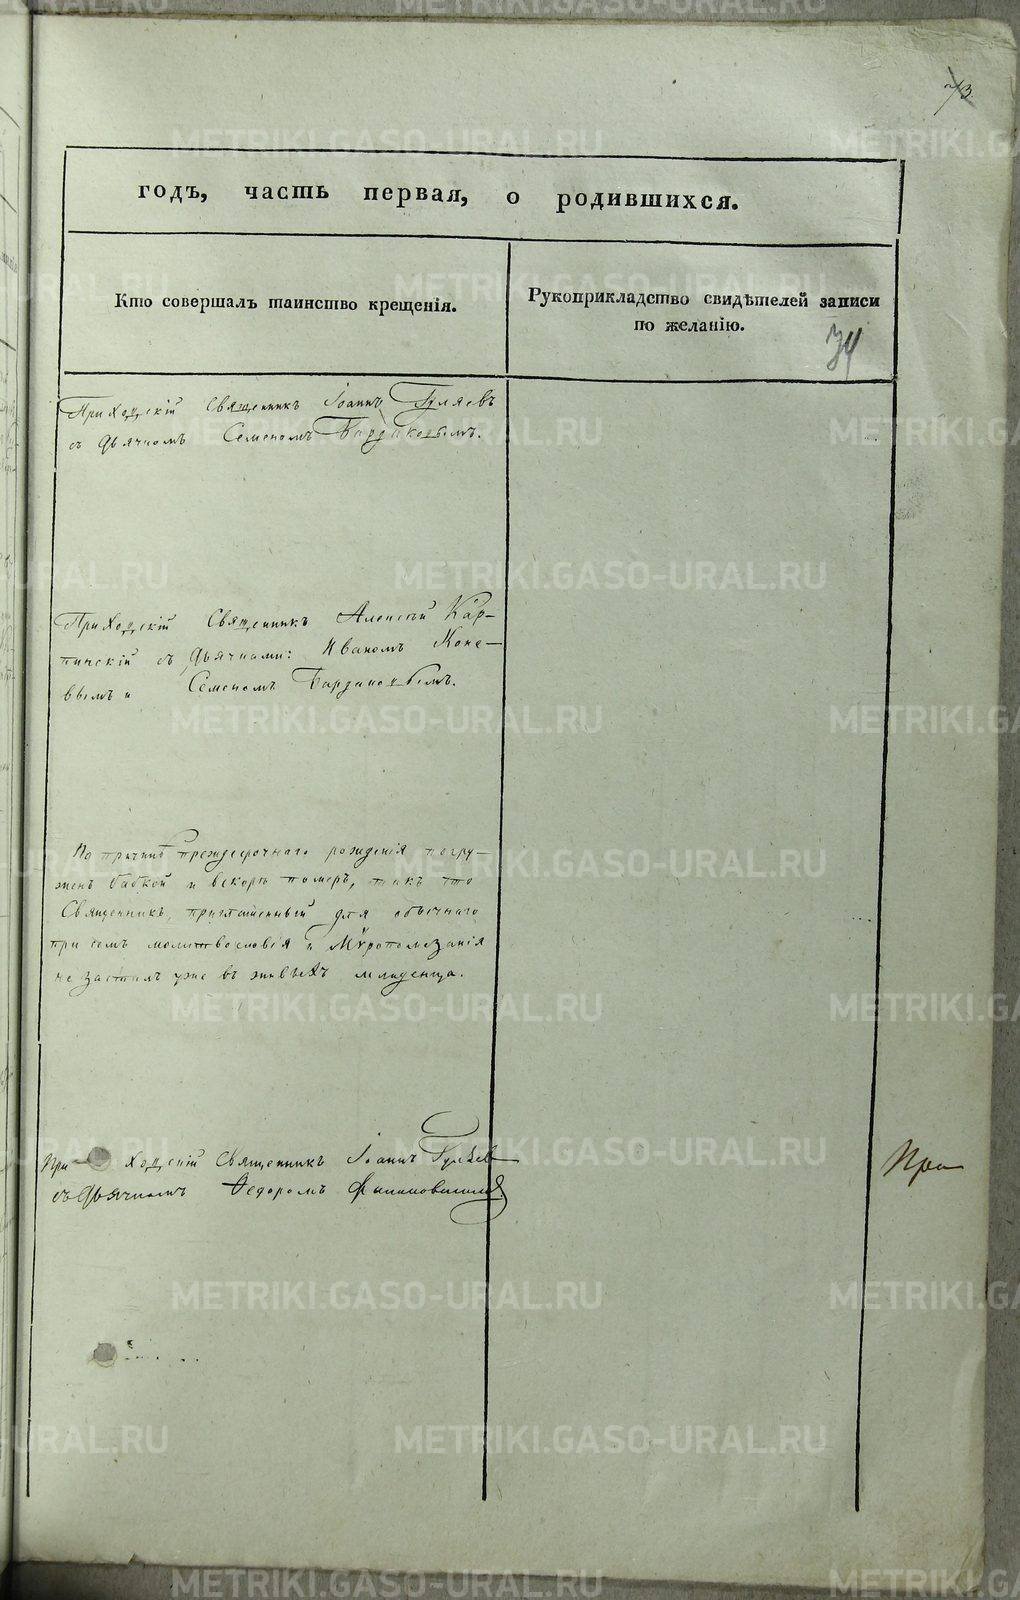 73.
годъ, часть первая, о родившихся.
Кто совершалъ таинство крещенія.
Рукоприкладство свидѣтелей записи
по желанію.
34
Приходскій Священникъ Іоаннъ Гуляевъ
съ Дьячкомъ Семеномъ Бардаковымъ.
Приходскій Священникъ Алексѣй Кар-
пинскій съ Дьячками: Иваномъ Коне-
вымъ и Семеномъ Бардаковымъ.
По причинѣ преждесрочнаго рожденія погру-
женъ бабкой и вскорѣ померъ, такъ что
Священникъ, приглашенный для обычнаго
при семъ молитвословія и Мѵропомазанія
не засталъ уже въ живыхъ младенца.
При- ходскій Священникъ Іоаннъ Гуляевъ
съ Дьячкомъ Ѳедоромъ
При
METRIKI.GASO-URAL.RU